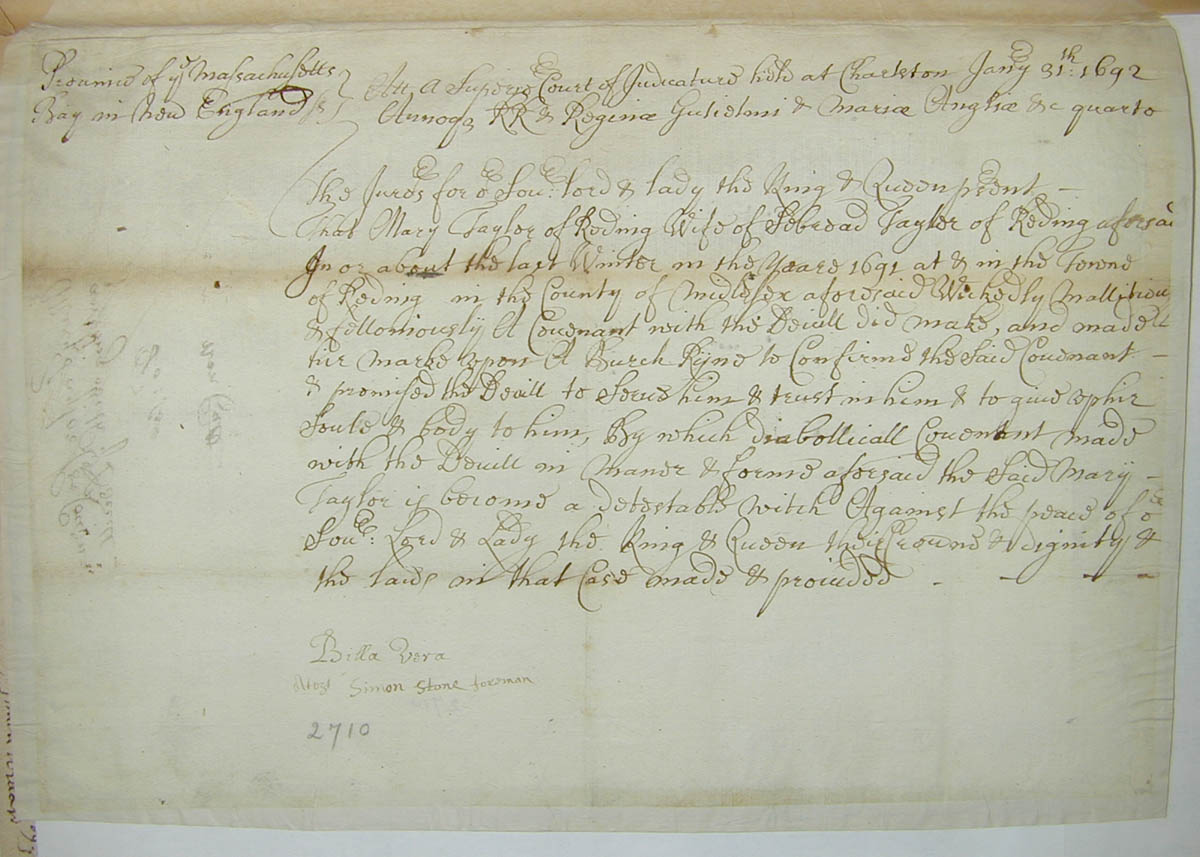 Prouince of ye Massachusetts
Bay in New England ss
Att A Superior Court of Judicature held at Charlston Janry 31th: 1692
Annoqe RRs & Reginæ Gulielmi & Mariæ Angliæ &c quarto
The Juros for or Sour: lord & lady the King & Queen prsent -
That Mary Taylor of Reding Wife of Sebread Taylor of Reding aforsaid
In or about the last Winter in the Yeare 1691 at & in the Towne
of Reding in the County of Midlesex aforesaid Wickedly Mallitiously
& felloniously A Covenant with the Deuill did make, and made
hir marke Vpon A Burch Ryne to Confirme the said Couenant -
& promised the Deuill to Serue him & trust in him & to giue vp hir
Soule & body to him, By which diabollicall Couenant made
with the Deuill in Maner & forme aforsaid the Said Mary -
Taylor is become a detestable witch Against the peace of or
Sour: Lord & Lady the King & Queen their Crowne & dignity &
the laws in that Case made & prouided - - - -
Billa Vera
Attest Simon Stone foreman
2710